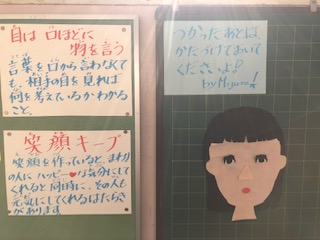 目は口ほどに
物を言う
言葉を口から言わなくて
も、相手の目を見れば
何を考えているかわかる
こと。
笑顔キープ
笑顔を作っていると、まわり
の人に ハッピー♥な気分にして
くれると同時に、その人も
元気にしてくれるはたらき
があります
つかったあとは、
かたづけておいて
くださいよ!
by